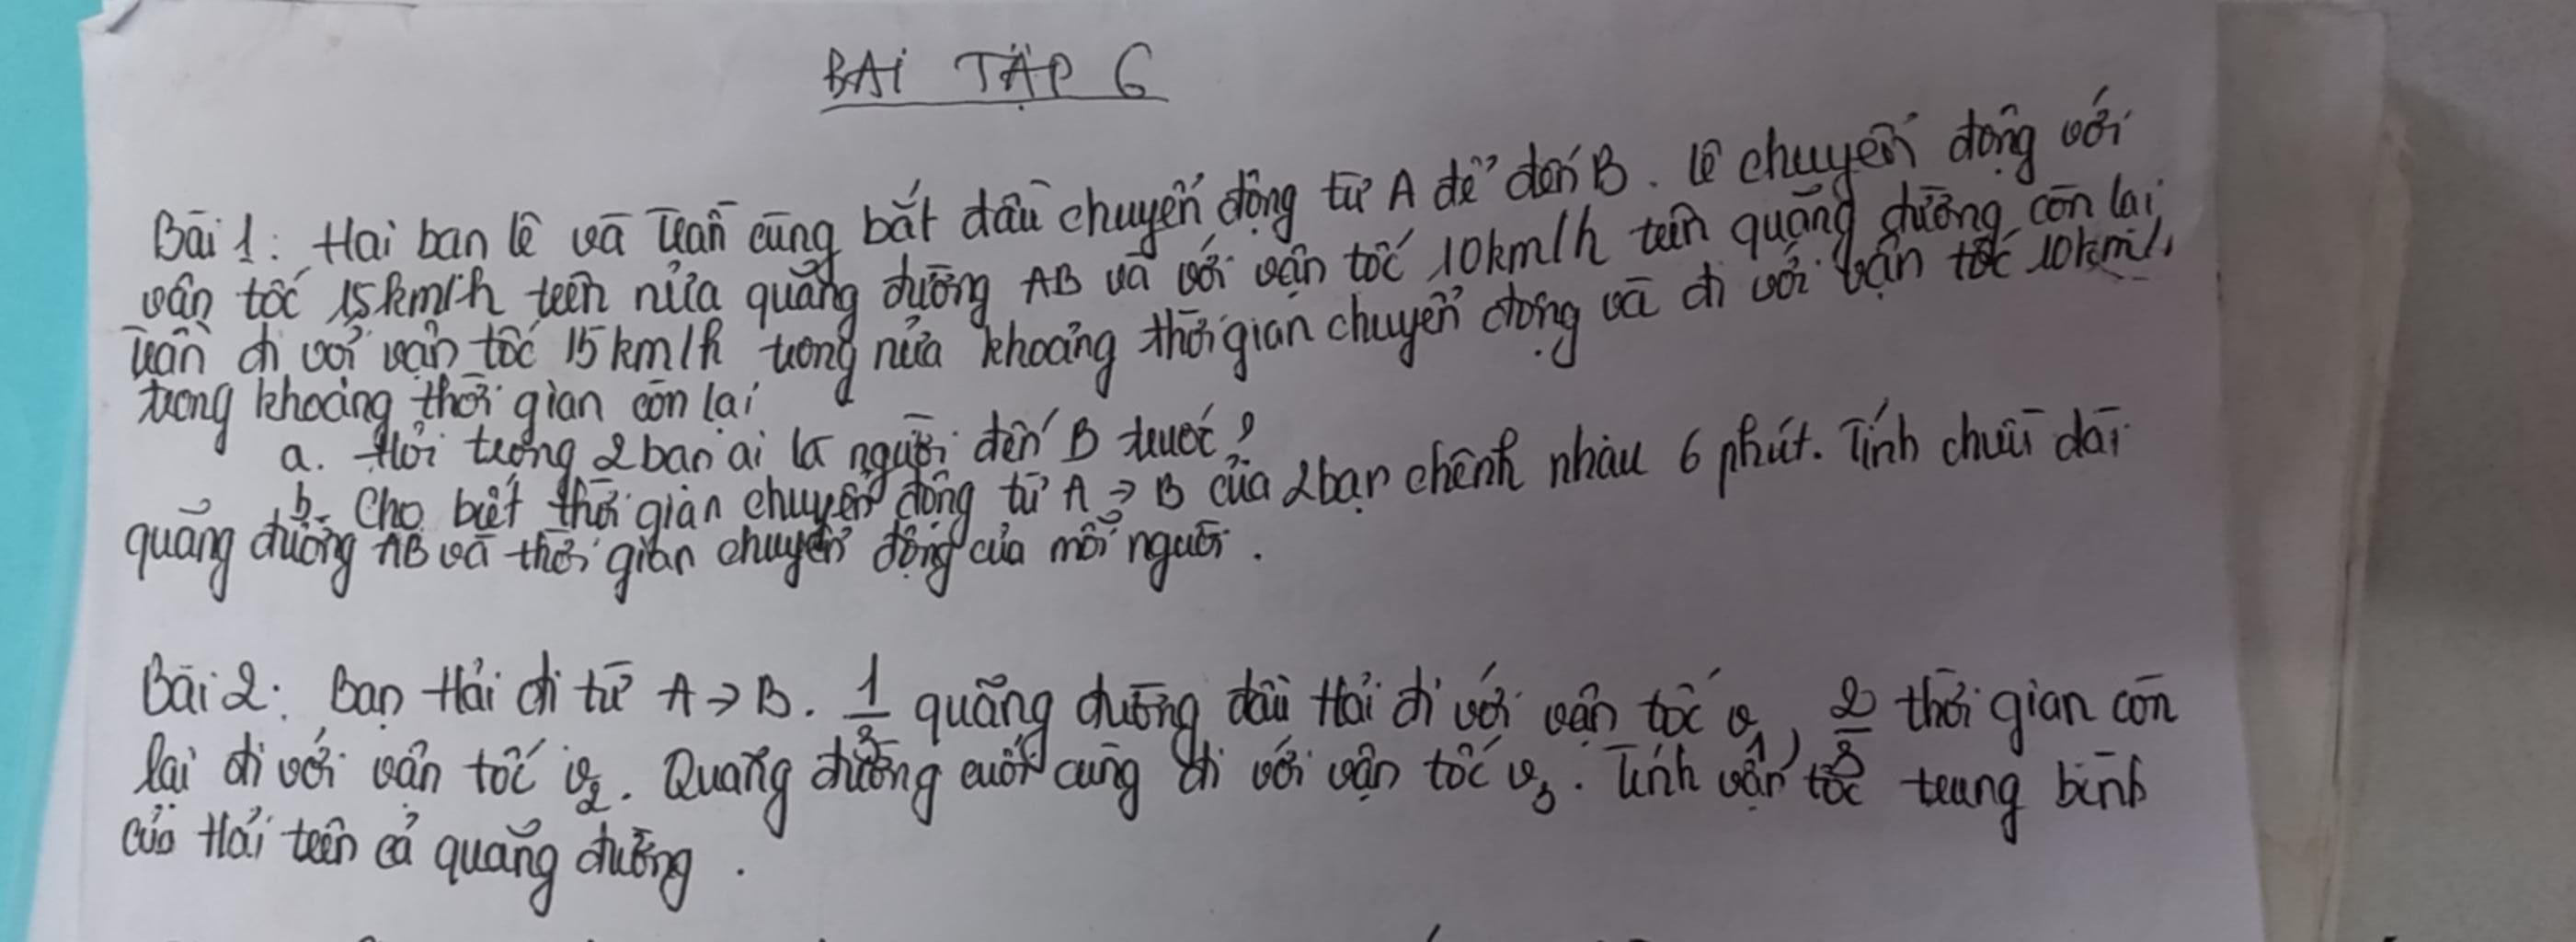 BÀI TẬP 6
Bài 1: Hai bạn lê và Tuấn cùng bắt đầu chuyển động từ A để đến B. lê chuyển động với
vận tốc 15km/h trên nửa quãng đường AB và với vận tốc 10km/h trên quãng đường còn lại,
Tuấn đi với vận tốc 15km/h trong nửa khoảng thời gian chuyển động và đi với vận tốc 10km/h
trong khoảng thời gian còn lại
a. Hỏi trong 2 bạn ai là người đến B trước?
b. Cho biết thời gian chuyển động từ A → B của 2 bạn chênh nhau 6 phút. Tính chiều dài
quãng đường AB và thời gian chuyển động của mỗi người.
Bài 2: Bạn Hải đi từ A → B. 1/3 quãng đường đầu Hải đi với vận tốc v₁, 2/3 thời gian còn
lại đi với vận tốc v₂. Quãng đường cuối cùng đi với vận tốc v₃. Tính vận tốc trung bình
của Hải trên cả quãng đường.